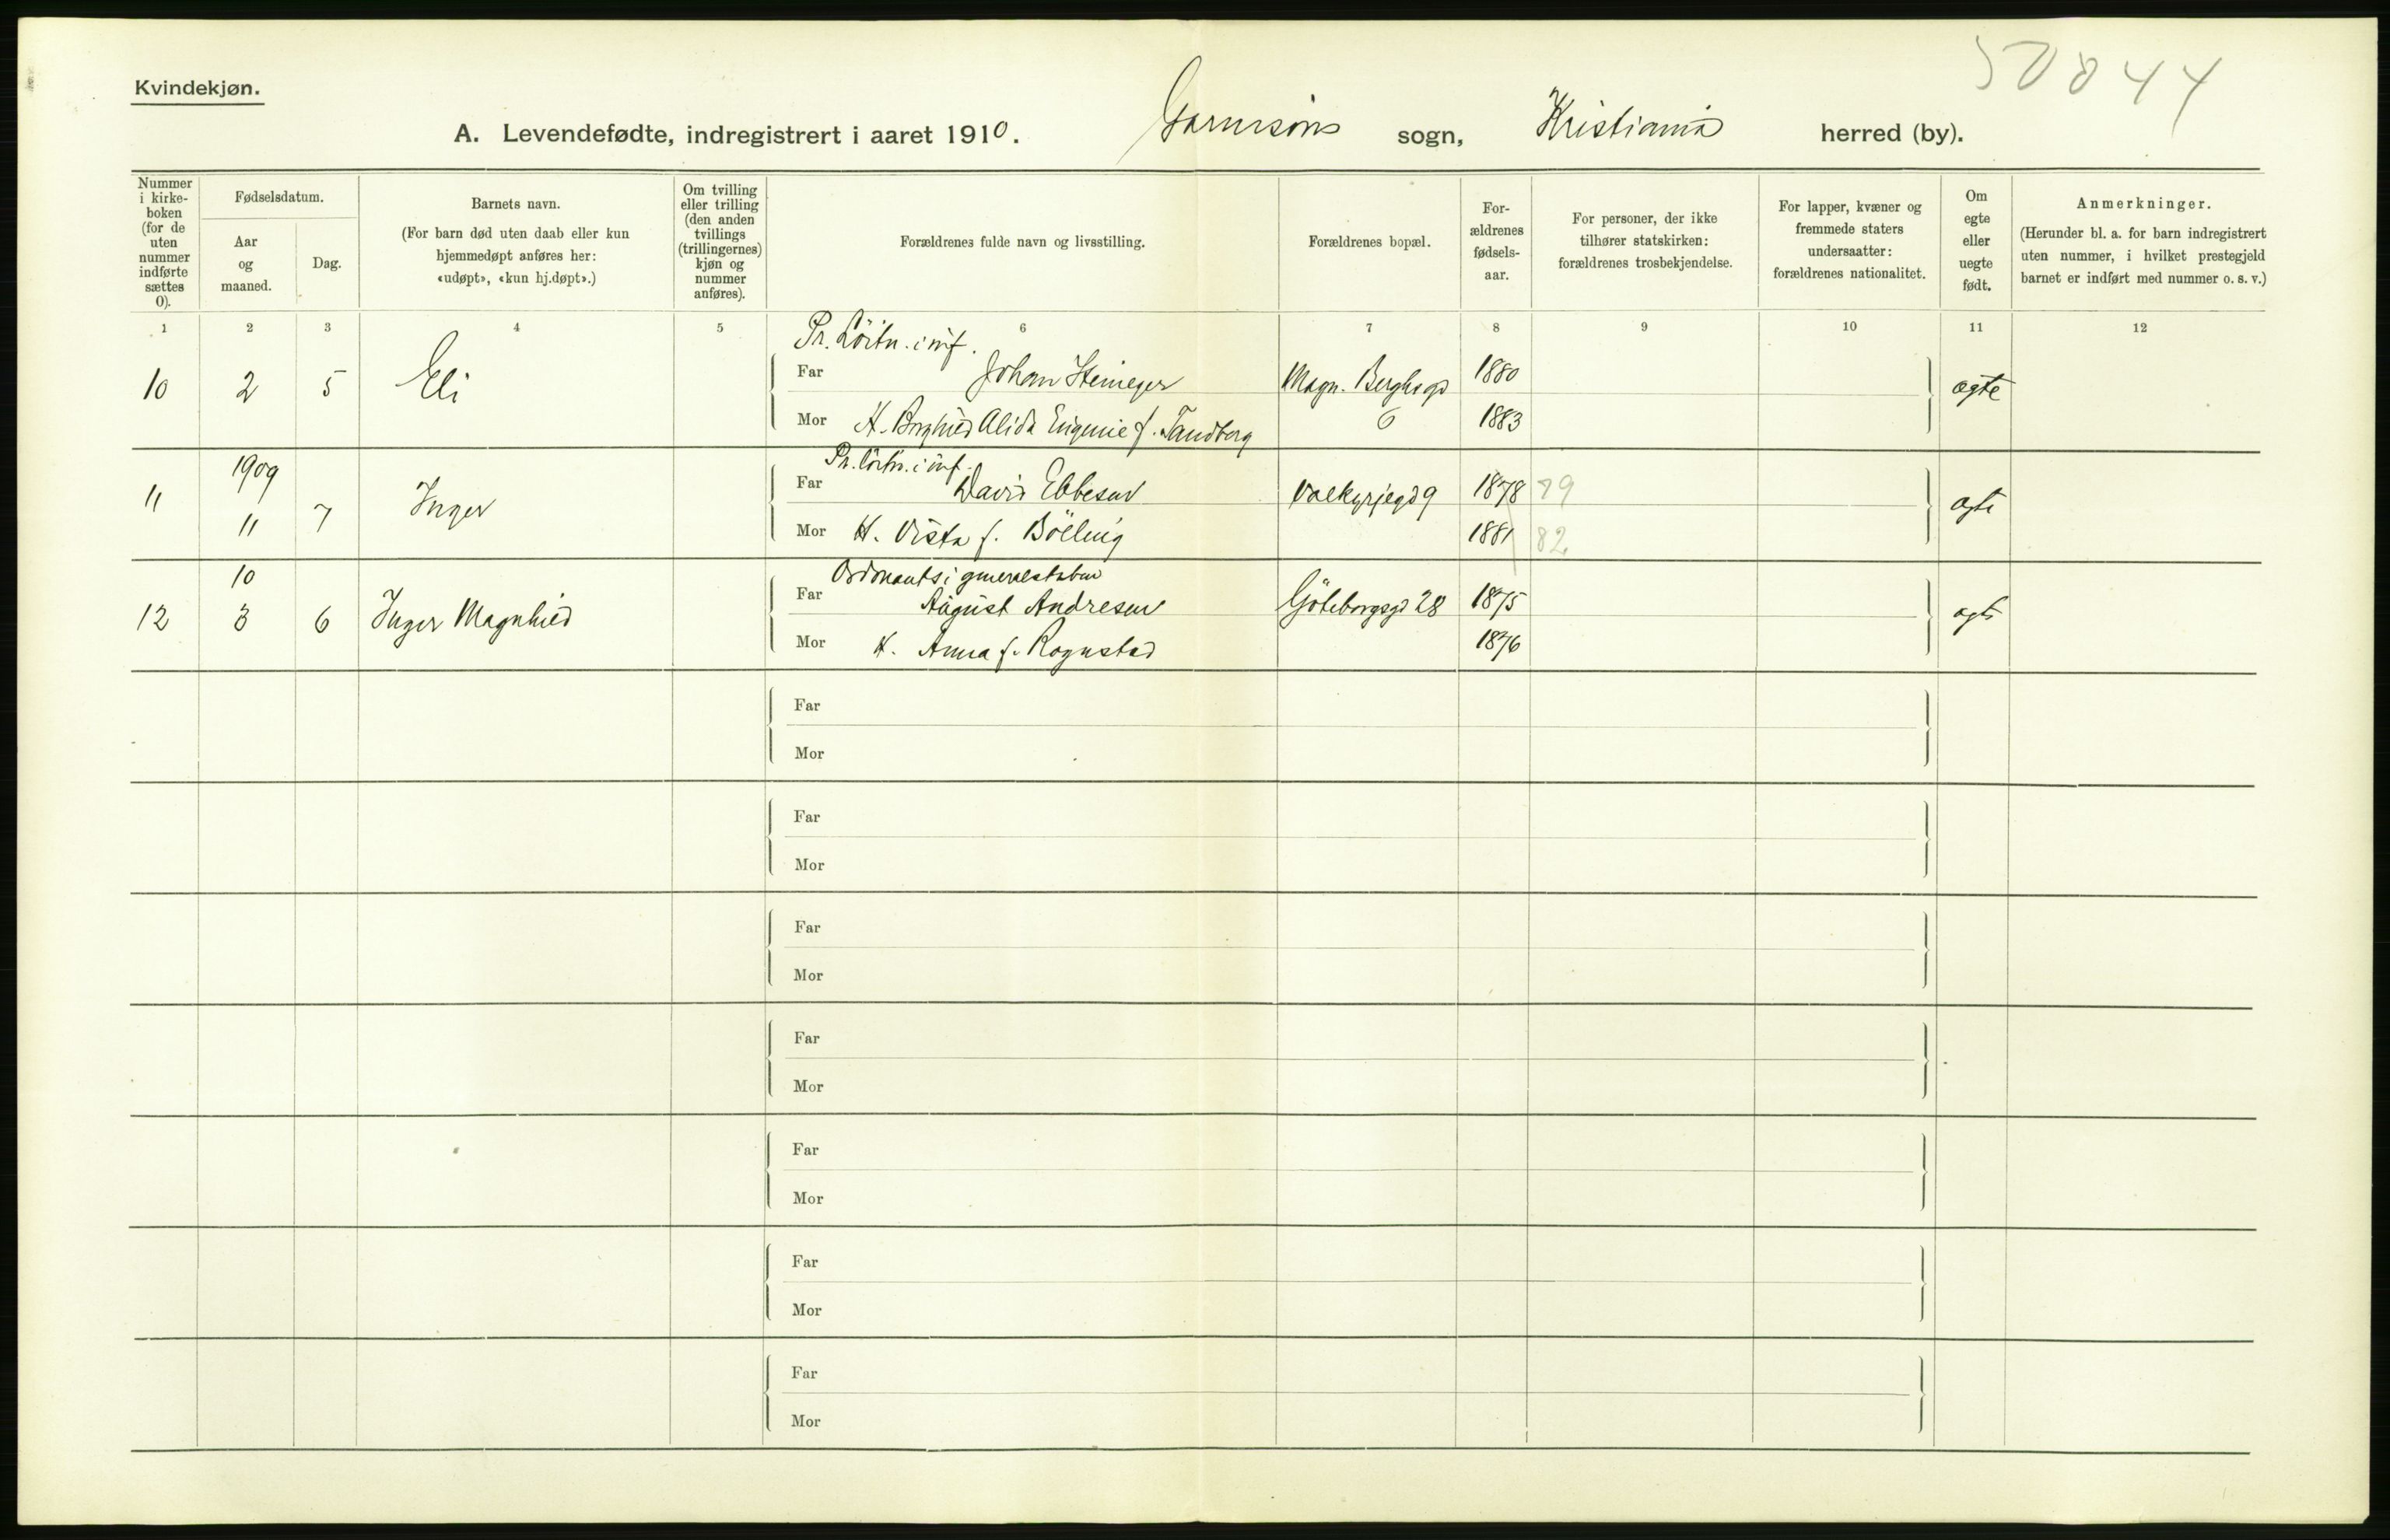 50844
Kvindekjøn.
A. Levendefødte, indregistrert i aaret 1910. Garnisons sogn, Kristiania herred (by).
Nummer i kirke-boken (for de uten nummer indførte sættes 0).
Fødselsdatum.
Aar og maaned.
Dag.
Barnets navn.
(For barn død uten daab eller kun hjemmedøpt anføres her: «udøpt», «kun hj.døpt».)
Om tvilling eller trilling (den anden tvillings (trillingernes) kjøn og nummer anføres).
Forældrenes fulde navn og livsstilling.
Forældrenes bopæl.
For-ældrenes fødsels-aar.
For personer, der ikke tilhører statskirken: forældrenes trosbekjendelse.
For lapper, kvæner og fremmede staters undersaatter: forældrenes nationalitet.
Om egte eller uegte født.
Anmerkninger.
(Herunder bl. a. for barn indregistrert uten nummer, i hvilket prestegjeld barnet er indført med nummer o. s. v.)
1 2 3 4 5 6 7 8 9 10 11 12
Pr. Löitn. i inf.
10 2 5 Eli Far Johan Steineger Magn. Berghsgd 1880 ægte
Mor H. Borghild Alida Eugenie f. Tandberg 6 1883
1909 Pr. löitn. i inf.
11 11 7 Inger Far David Ebbesen Valkyrjegd 9 1878 79 ægte
Mor H. Vista f. Bölling 1881 82
10 Ordonants i generalstaben
12 3 6 Inger Magnhild Far August Andresen Göteborgsgd 28 1875 ægte
Mor H. Anna f. Rognstad 1876
Far
Mor
Far
Mor
Far
Mor
Far
Mor
Far
Mor
Far
Mor
Far
Mor